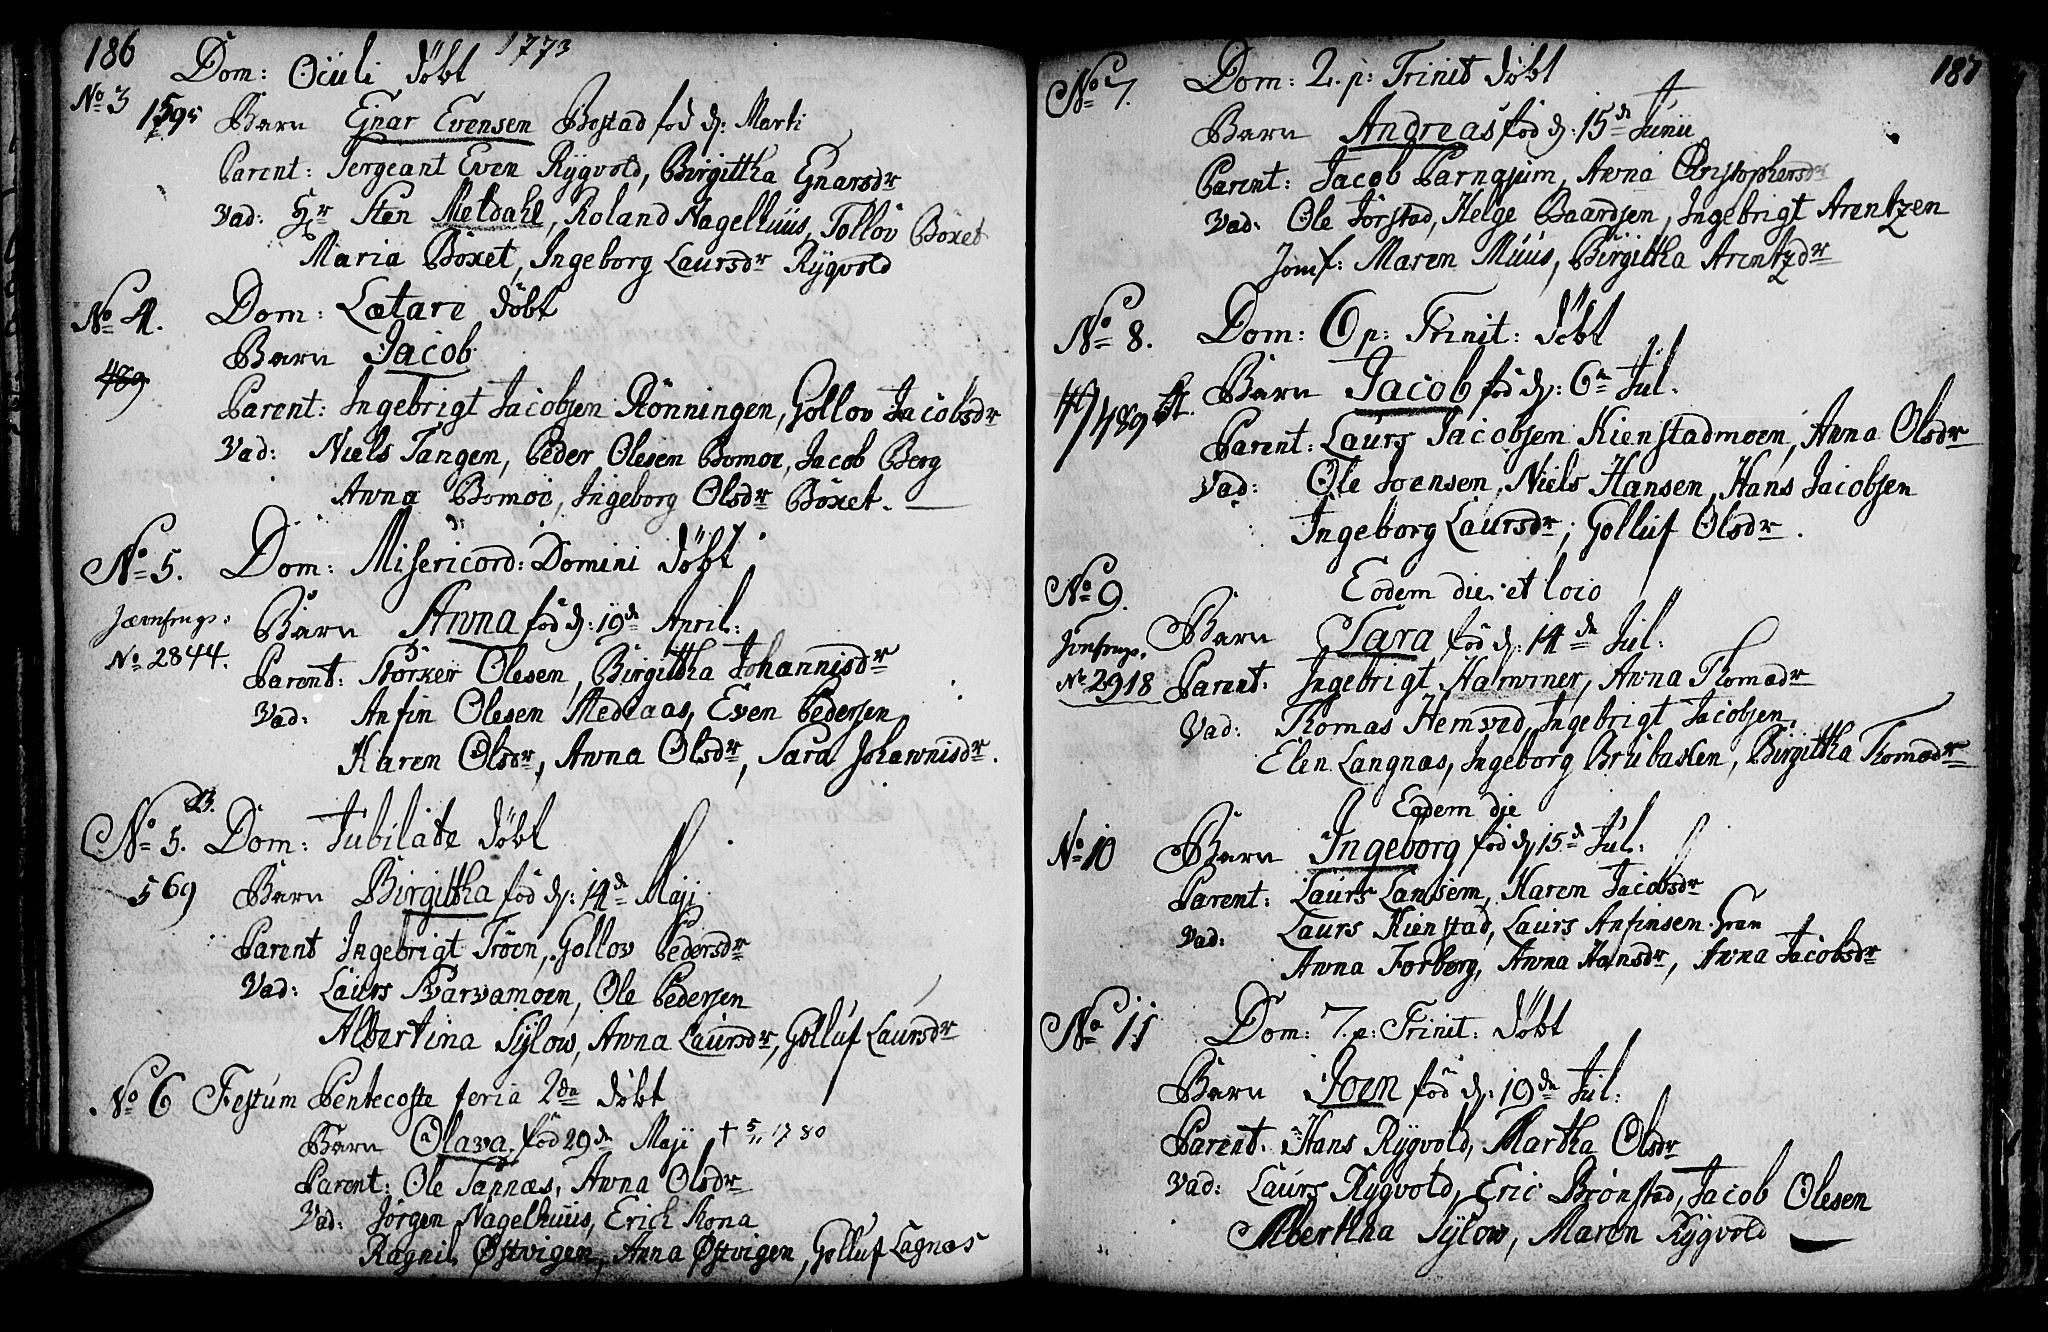 186
1773
Dom: Oculi döbt
No 3
1595
Barn Ejnar Evensen Bostad föd d: Marti
Parent: Sergeant Even Rÿgvold, Birgittha Ejnarsdr
Vad: Hr Sten Meldahl, Roland Nagelhuus, Tollov Böxet
Maria Böxet, Ingeborg Laursdr Rÿgvold
No 4.
Dom: Lætare döbt
Barn Jacob
489
Parent: Ingebrigt Jacobsen Rönningen, Gollov Jacobsdr
Vad: Niels Tangen, Peder Olesen Bomoe, Jacob Berg
Anna Bomoe, Ingeborg Olsdr Böxet.
No 5.
Dom: Misericord: Domini döbt
Jærnfengs:
No 2844.
Barn Anna föd d: 19de April:
Parent: Störker Olesen, Birgittha Johannisdr
Vad: Anfin Olesen Medraas, Even Pedersen
Karen Olsdr, Anna Olsdr, Sara Johannisdr.
No 5. B.
Dom: Jubilate döbt
569
Barn Birgittha föd d: 14de Maji
Parent Ingebrigt Tröen, Gollov Pedersdr
Vad: Laurs Svarvamoen, Ole Pedersen
Albertina Sÿlow, Anna Laursdr, Golluf Laursdr
No 6 Festum Pentecoste feria 2da döbt
Barn Olava föd 29de Maji † 5/11 1780
Parent: Ole Tapnæs, Anna Olsdr
Vad: Jörgen Nagelhuus, Erich Kona
Ragnil Östvigen, Anna Östvigen, Golluf Lagnæs
187
No 7.
Dom: 2. p: Trinit döbt
†
Barn Andreas föd d: 15de Junii
Parent: Jacob Parngjum, Anna Christophersdr
Vad: Ole Jörstad, Helge Baardsen, Ingebrigt Arentzen
Jomf: Maren Muus, Birgittha Arentzdr
No 8.
Dom: 6 p: Trinit: döbt
489
Barn Jacob föd d: 6te Jul:
Parent: Laurs Jacobsen Kienstadmoen, Anna Olsdr
Vad: Ole Joensen, Niels Hansen, Hans Jacobsen
Ingeborg Laursdr, Golluf Olsdr.
No 9.
Eodem die et loco
Jernfengs.
No 2918
Barn Sara föd d: 14de Jul:
Parent. Ingebrigt Hammer, Anna Thomædr
Vad: Thomas Hemved, Ingebrigt Jacobsen.
Elen Langnæs, Ingeborg Brubakken, Birgittha Thomædr
Eodem die
No 10
Barn Ingeborg föd d 15de Jul:
Parent: Laurs Lansem, Karen Jacobsdr
Vad: Laurs Kienstad, Laurs Anfinsen Gran
Anna Forberg, Anna Hansdr, Anna Jacobsdr
No 11
Dom: 7. p: Trinit: döbt
Barn Joen föd d: 19de Jul:
Parent. Hans Rÿgvold, Martha Olsdr
Vad: Laurs Rÿgvold, Eric Brönstad, Jacob Olesen
Albertha Sÿlow, Maren Rÿgvold